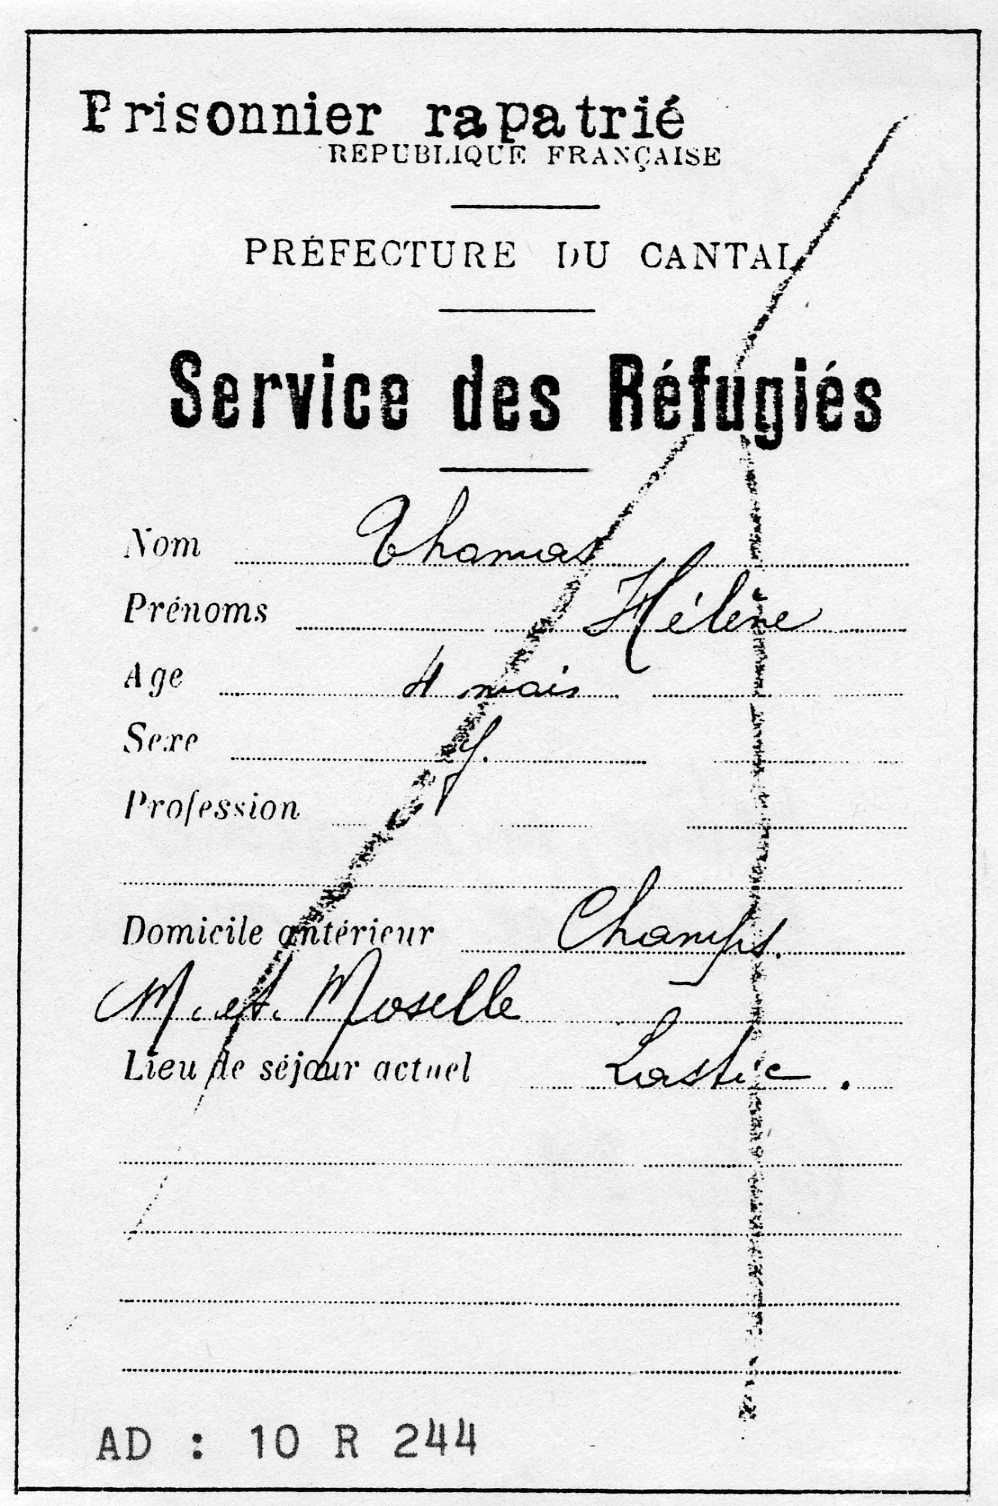 Prisonnier rapatrié
RÉPUBLIQUE FRANÇAISE
PRÉFECTURE DU CANTAL
Service des Réfugiés
Nom Thomas
Prénoms Hélène
Age 4 mois
Sexe f.
Profession
Domicile antérieur Champs.
M. et. Moselle
Lieu de séjour actuel Lastic.
AD : 10 R 244